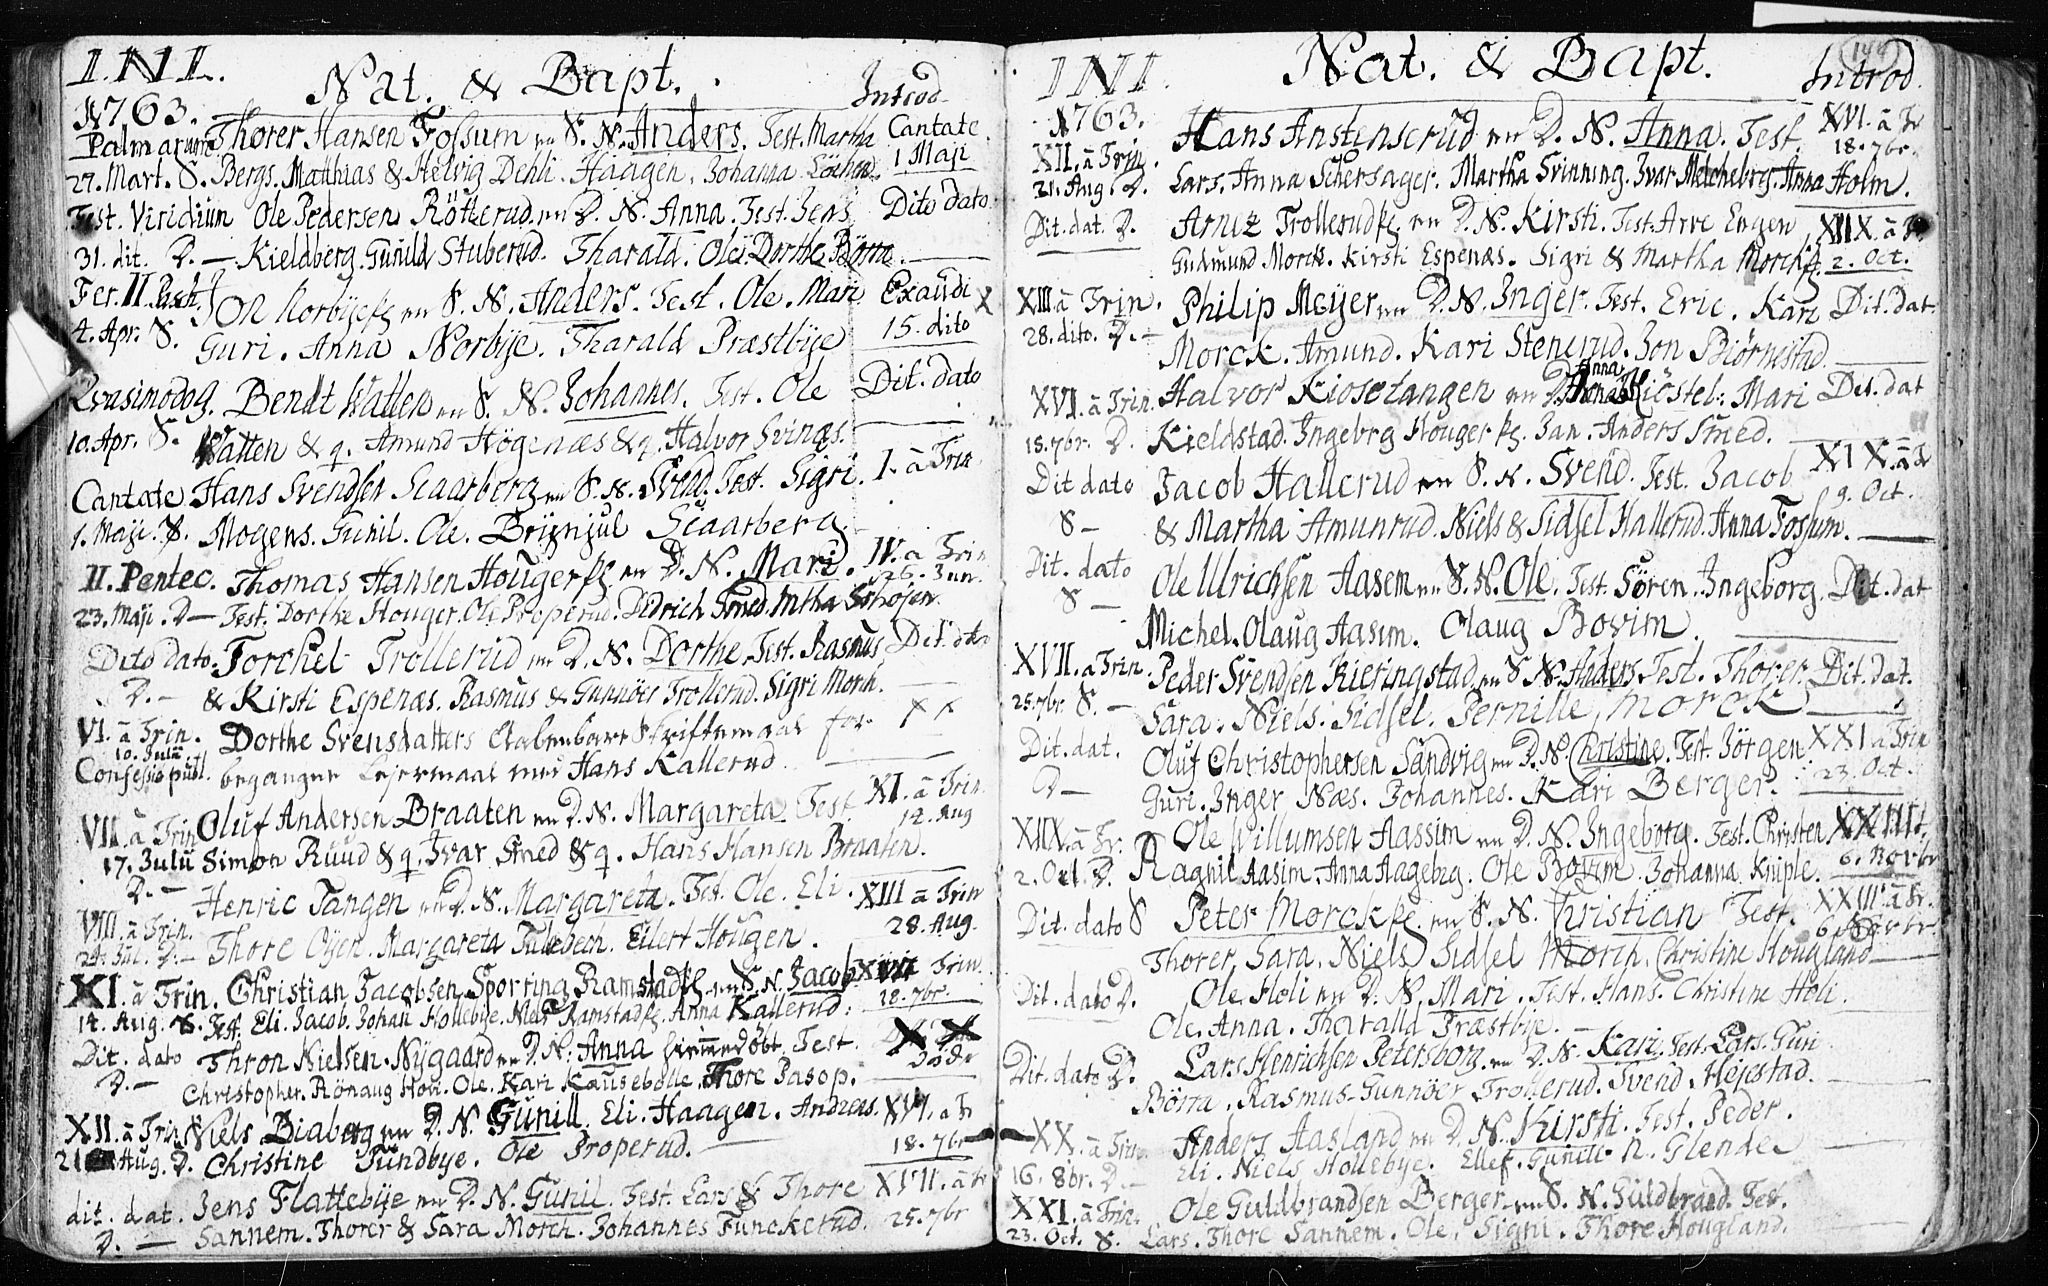 I.N.I. Nat. & Bapt. Introd.
1763.
Palmarum Thorer Hansen Fossum en S. N. Anders. Test. Martha Cantate
27. Mart. S. Bergs. Matthias & Helvig Dehli. Haagen. Johanna 1 Maji
Fest. Viridium Ole Pedersen en D. N. Anna. Test. Jens Dito dato
31. dit. D. — Kieldberg. Gunild Stuberud. Tharald. Ole. Dorthe Börra.
Fer. II. Pasch. Norbye en S. N. Anders. Test. Ole. Mari Exaudi X
4. Apr. S. Guri. Anna Norbye. Tharald Præstbye 15. dito
Qvasimodog. Bendt Watten en S. N. Johannes. Test. Ole Dit. dato
10. Apr. S. Watten & q. Amund Högenæs & q. Halvor Svinæs.
Cantate Hans Svendsen Scaarberg en S. N. Svend. Test. Sigri. I. à Trin.
1. Maji. S. Mogens. Gunil. Ole. Brynjul Scaarberg.
II. Pentec. Thomas Hansen Houger en D. N. Mari. IV. a Trin
23. Maji. D — Test. Dorthe Houger. Ole Properud. Didrich Smed. Mtha 26. Jun.
Dito dato. Torchel Trollerud en D. N. Dorthe. Test. Rasmus Dit. dto
D. — & Kirsti Espenæs. Rasmus & Gunnöer Trollerud. Sigri Morch.
VI. à Trin. Dorthe Svensdatters Aabenbare Skriftemaal for X X
10. Julii
Confessio publ. begangne Lejermaal med Hans Kallerud.
VII. à Trin Oluf Andersen Braaten en D. N. Margareta. Test. XI. à Trin.
17. Julii Simon Ruud & q. Ivar Smed & q. Hans Hansen Braaten. 14. Aug
D. — Henric Tangen en D. N. Margareta. Test. Ole. Eli. XIII a Trin
VIII. à Trin.
24. Jul. D. — Thore Oyer. Margareta Eilert Hougen. 28. Aug.
XI. à Trin. Christian Jacobsen Sporring Ramstad en S. N. Jacob Trin.
14. Aug. S. Test. Eli. Jacob. Johan Hollebye. Niels Ramstad. Anna Kallerud. 18. 7br.
Dit. dato Thron Nielsen Nygaard en D. N. Anna hiemmedöbt. Test.
D. — Christopher. Rönaug Holi. Ole. Kari Kausebolle. Thore Pasop.
XII. à Trin Niels Diaberg en D. N. Gunill. Eli. Haagen. Andreas. XVI. a Tr
21 Aug. D. Christine Ole Properud. 18. 7br
dit. dat. Jens Flattebye en D. N. Gunil. Test. Lars & Thore XVII. à Tr
D. — Sannem. Thorer & Sara Morch. Johannes Funckerud. 25. 7br
INI Nat. & Bapt. Introd.
1763. Hans Anstenserud en D. N. Anna. Test. XVI. à Tr
XII. à Trin. 18. 7br.
21. Aug. D. Lars. Anna Schersager. Martha Svinning. Ivar Melcheberg. Anna Holm.
Dit. dat. D. Arne Trollerud en D. N. Kirsti. Test. Arve Engen XIIX. à Tr
Gudmund Morck. Kirsti Espenæs. Sigri & Martha Morck 2. Oct.
XIII à Trin. Philip Meyer en D. N. Inger. Test. Eric. Kari Dit. dat
28. dito. D. — Morck. Amund. Kari Stenerud. Jon Biörnestad
XVI. à Trin. Halvor Kiosetangen en D. Anna Kiöstel. Mari Dit. dat
18. 7br. D. Kieldstad. Ingebrg Houger. Jan. Anders Smed.
Dit dato Jacob Hallerud en S. N. Svend. Test. Jacob XIX. à Tr
S — & Martha Amunrud. Niels & Sidsel Hallerud. Anna Fossum. 9. Oct.
Dit. dato Ole Ulrichsen Aasem en S. N. Ole. Test. Sören. Ingeborg. Dit. dat
S — Michel. Olaug Aasim. Olaug Bovim.
XVII. a Trin. Peder Svendsen Kieringstad en S N. Anders Test. Thorer. Dit. dat.
25. 7br. S. — Sara. Niels. Sidsel. Pernille Morck
Dit. dat. Oluf Christophersen Sandvig en D. N. Christine. Test. Jörgen XXI a Trin
D — Guri. Inger Næs. Johannes. Kari Berger. 23. Oct.
XIIX. à Tr. Ole Willumsen Aassim en D. N. Ingeborg. Test. Christen
2. Oct. D. Ragnil Aasim. Anna Aagebrg. Ole Bovim. Johanna Kniple. 6. Novbr
Dit. dato S Peter Morck en S. N. Christian Test. XXIII à Tr.
Thorer. Sara. Niels Sidsel Morch. Christine Hougland 6. Novbr.
Dit. dato D. Ole Holi en D. N. Mari. Test. Hans. Christine Holi.
Ole. Anna. Tharald Præstbye.
Dit. dato D. Lars Henrichsen Petersborg en D. N. Kari. Test. Lars. Guri
Börra. Rasmus. Gunnöer Trollerud. Svend Hejestad.
XX. à Trin. Anders Aasland en D. N. Kirsti. Test. Peder.
16. 8br. D. — Eli. Niels Hollebye. Ellef. N. Glende
XXI. à Trin. Ole Guldbrandsen Berger en S. N. Guldbrand. Test.
23. Oct. S. Lars. Thore Sannem. Ole. Signi. Thore Hougland.